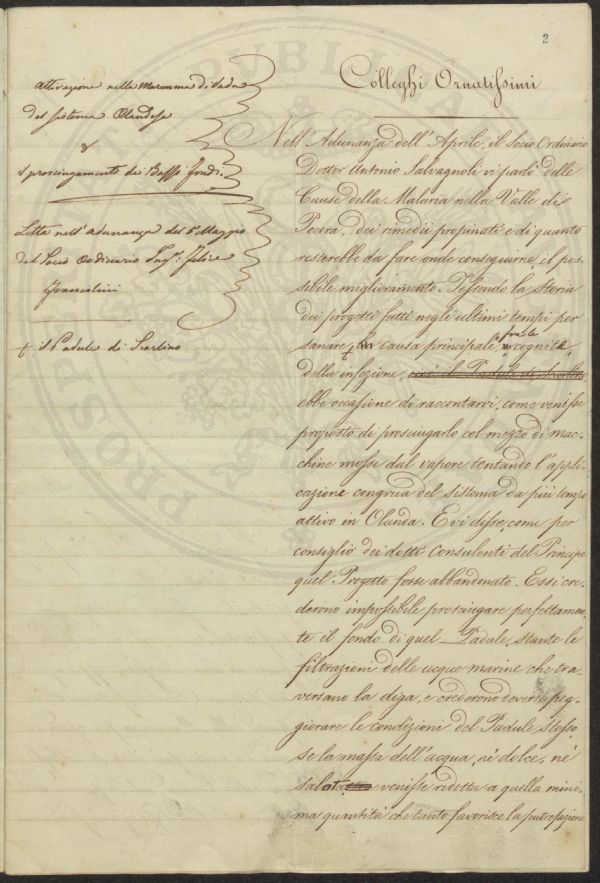 2
Attivazione nella Maremma di Vada
del sistema Olandese
&
il prosciugamento dei Bassi fondi.
Letta nell'adunanza del 5 Maggio
dal Socio Ordinario Ing.: Felice
Francolini
+ il Padule di Scarlino
Colleghi Ornatissimi
Nell'Adunanza dell'Aprile, il Socio Ordinario
Dottor Antonio Salvagnoli vi parlò delle
Cause della Malaria nella Valle di
Pecora, dei rimedii propinati e di quanto
resterebbe da fare onde conseguirne il pos-
sibile miglioramento. Tessendo la storia
dei progetti fatti negli ultimi tempi per
sanare, la causa principale, fra le cognite
della infezione, + cioè il Padule di Scarlino
ebbe occasione di raccontarvi, come venisse
proposto di prosciugarlo col mezzo di mac-
chine mosse dal vapore tentando l'appli-
cazione congrua del sistema da più tempo
attivo in Olanda. E vi disse, come per
consiglio dei dotti Consulenti del Principe
quel Progetto fosse abbandonato. Essi cre-
derono impossibile prosciugare perfettamen-
te il fondo di quel Padule, stante le
filtrazioni delle acque marine che tra-
versano la diga, e crederono doversi peg-
giorare le condizioni del Padule stesso,
se la massa dell'acqua, nè dolce, nè
salata venisse ridotta a quella mini-
ma quantità che tanto favorisce la putrefazione